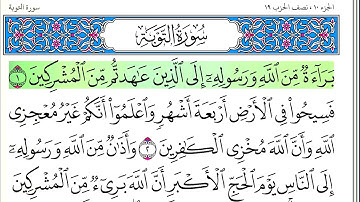 الجزء ١٠، نصف الحزب ١٩ سورة التوبة
سُورَةُ التَّوْبَةِ
بَرَآءَةٌ مِّنَ ٱللَّهِ وَرَسُولِهِۦٓ إِلَى ٱلَّذِينَ عَٰهَدتُّم مِّنَ ٱلْمُشْرِكِينَ ١
فَسِيحُوا۟ فِى ٱلْأَرْضِ أَرْبَعَةَ أَشْهُرٍ وَٱعْلَمُوٓا۟ أَنَّكُمْ غَيْرُ مُعْجِزِى
ٱللَّهِ وَأَنَّ ٱللَّهَ مُخْزِى ٱلْكَٰفِرِينَ ٢ وَأَذَٰنٌ مِّنَ ٱللَّهِ وَرَسُولِهِۦٓ
إِلَى ٱلنَّاسِ يَوْمَ ٱلْحَجِّ ٱلْأَكْبَرِ أَنَّ ٱللَّهَ بَرِىٓءٌ مِّنَ ٱلْمُشْرِكِينَ